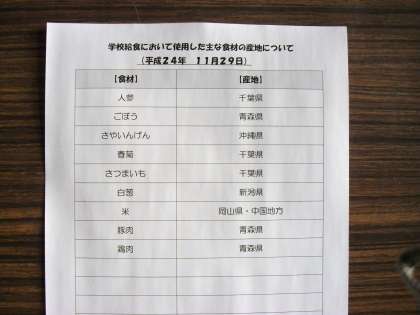 学校給食において使用した主な食材の産地について
(平成24年 11月29日)
【食材】 【産地】
人参 千葉県
ごぼう 青森県
さやいんげん 沖縄県
春菊 千葉県
さつまいも 千葉県
白葱 新潟県
米 岡山県・中国地方
豚肉 青森県
鶏肉 青森県